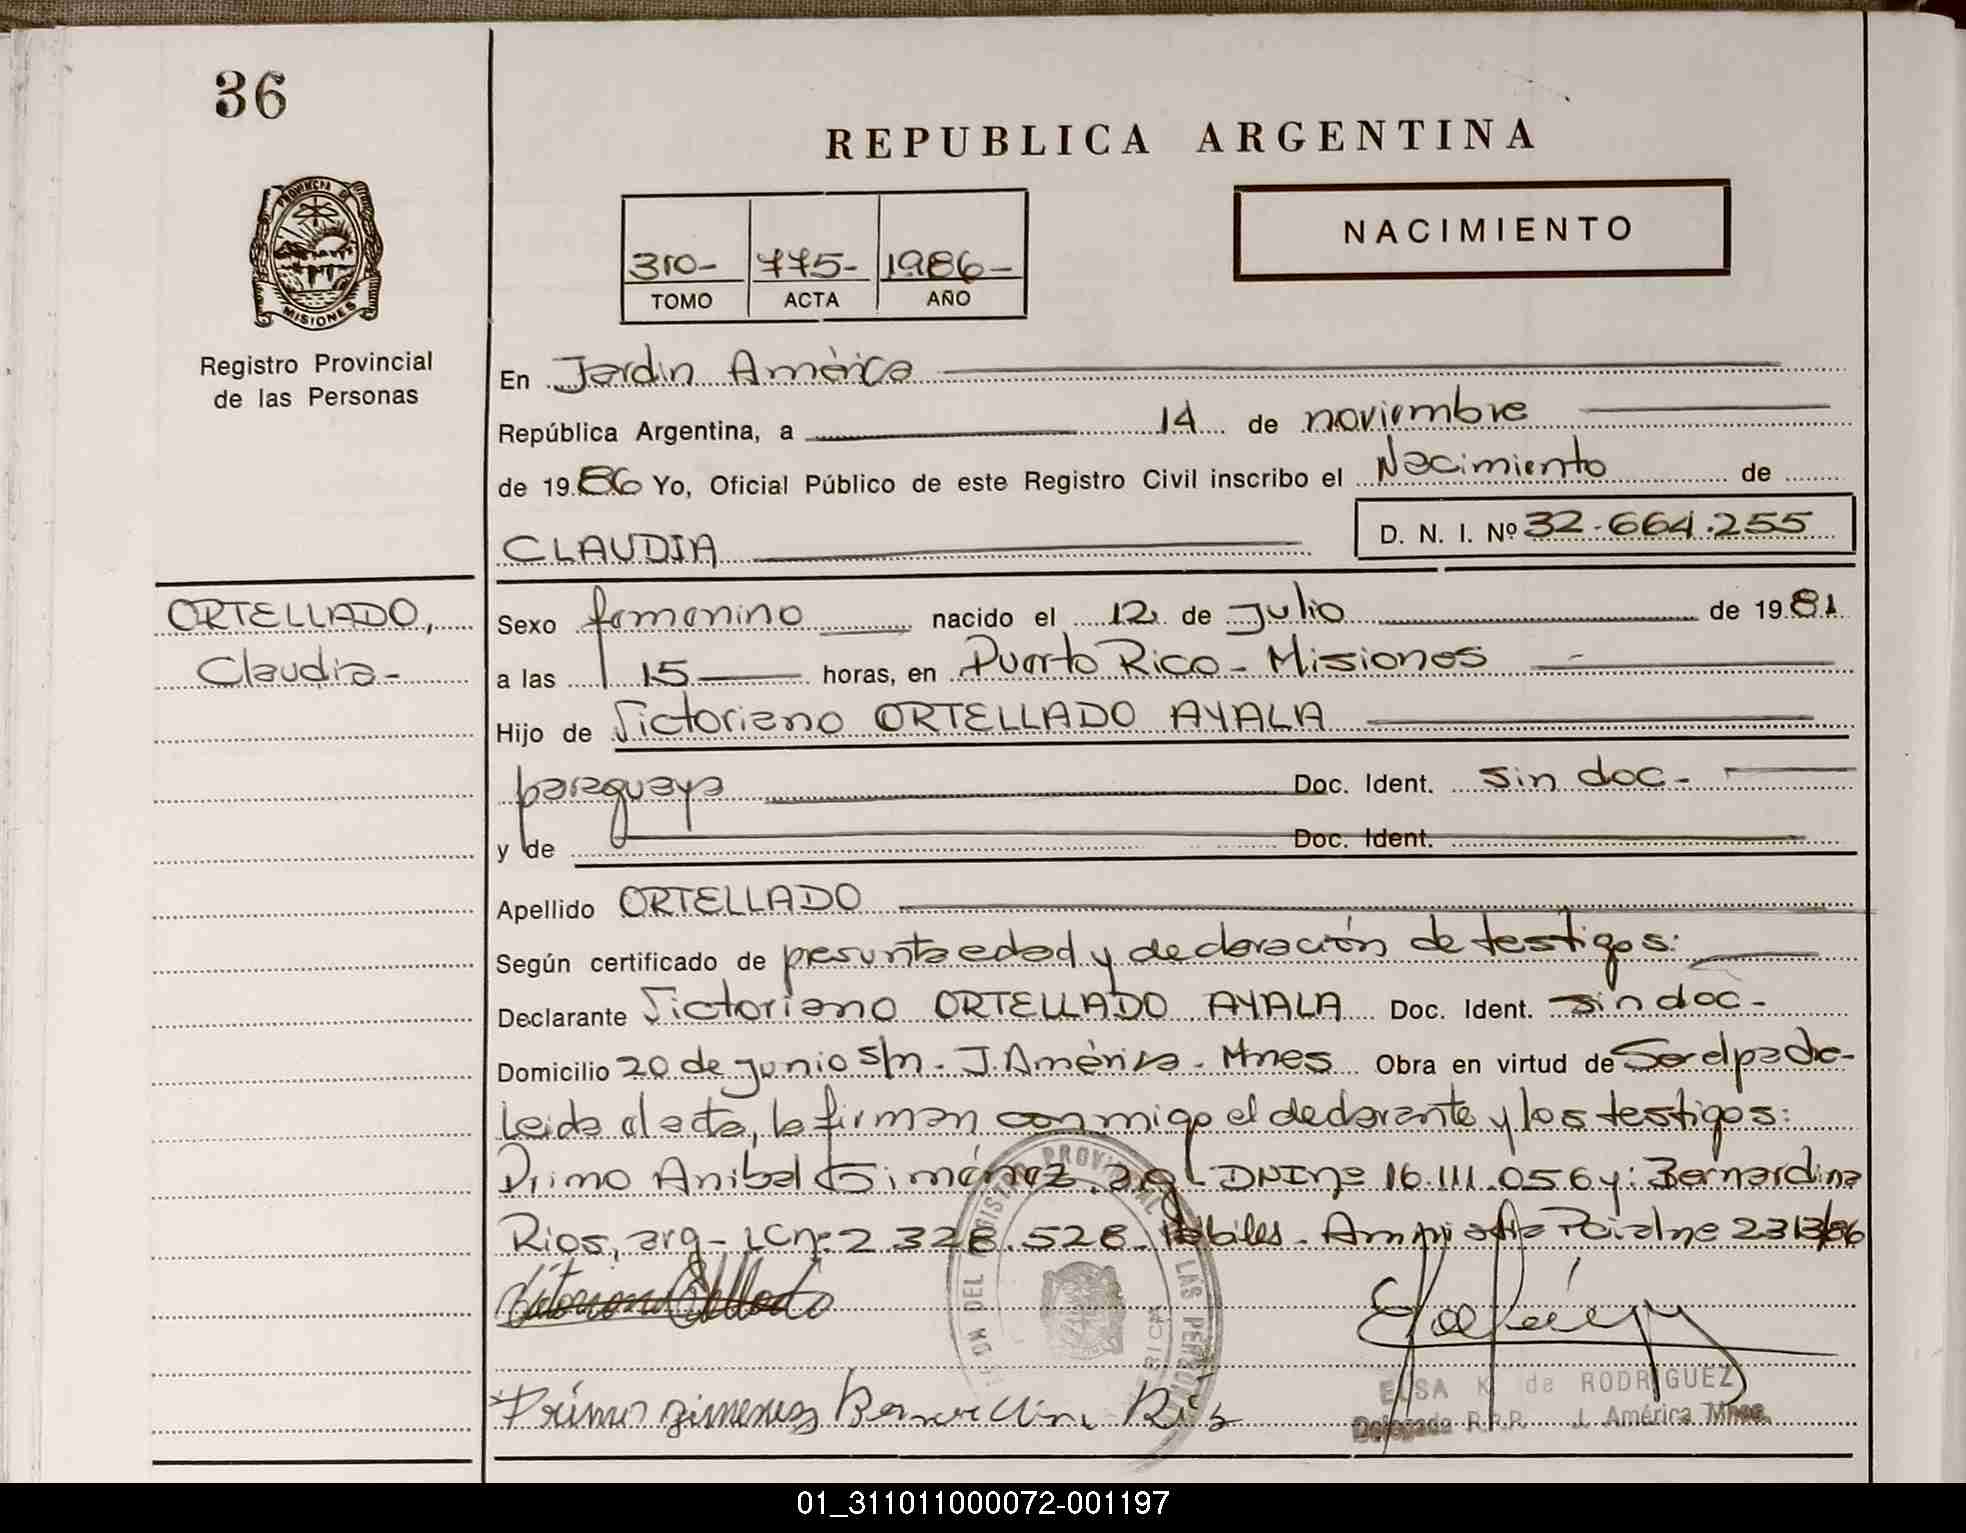 36
REPUBLICA ARGENTINA
PROVINCIA D
MISIONES
Registro Provincial
de las Personas
NACIMIENTO
310- 775- 1986-
TOMO ACTA AÑO
En Jardin América
República Argentina, a 14 de noviembre
de 1986 Yo, Oficial Público de este Registro Civil inscribo el Nacimiento de
CLAUDIA D. N. I. Nº 32.664.255
ORTELLADO,
Claudia-
Sexo femenino nacido el 12 de Julio de 1981
a las 15 horas, en Puerto Rico - Misiones
Hijo de Victoriano ORTELLADO AYALA
paraguaya Doc. Ident. sin doc-
y de Doc. Ident.
Apellido ORTELLADO
Según certificado de presunta edad y declaración de testigos:
Declarante Victoriano ORTELLADO AYALA Doc. Ident. sin doc-
Domicilio 20 de junio s/n. J. América - Mnes Obra en virtud de Ser el padre-
Leida el acta, la firman conmigo el declarante y los testigos:
Primo Anibal Giménez. arg- DNI nº 16.111.056 y: Bernardina
Rios, arg- LC nº 2.328.528- hábiles - 2313/86
Primo Gimenez Bernardina Rios
ELSA K de RODRIGUEZ
Delegada R.P.P. J. América Mnes.
01_311011000072-001197